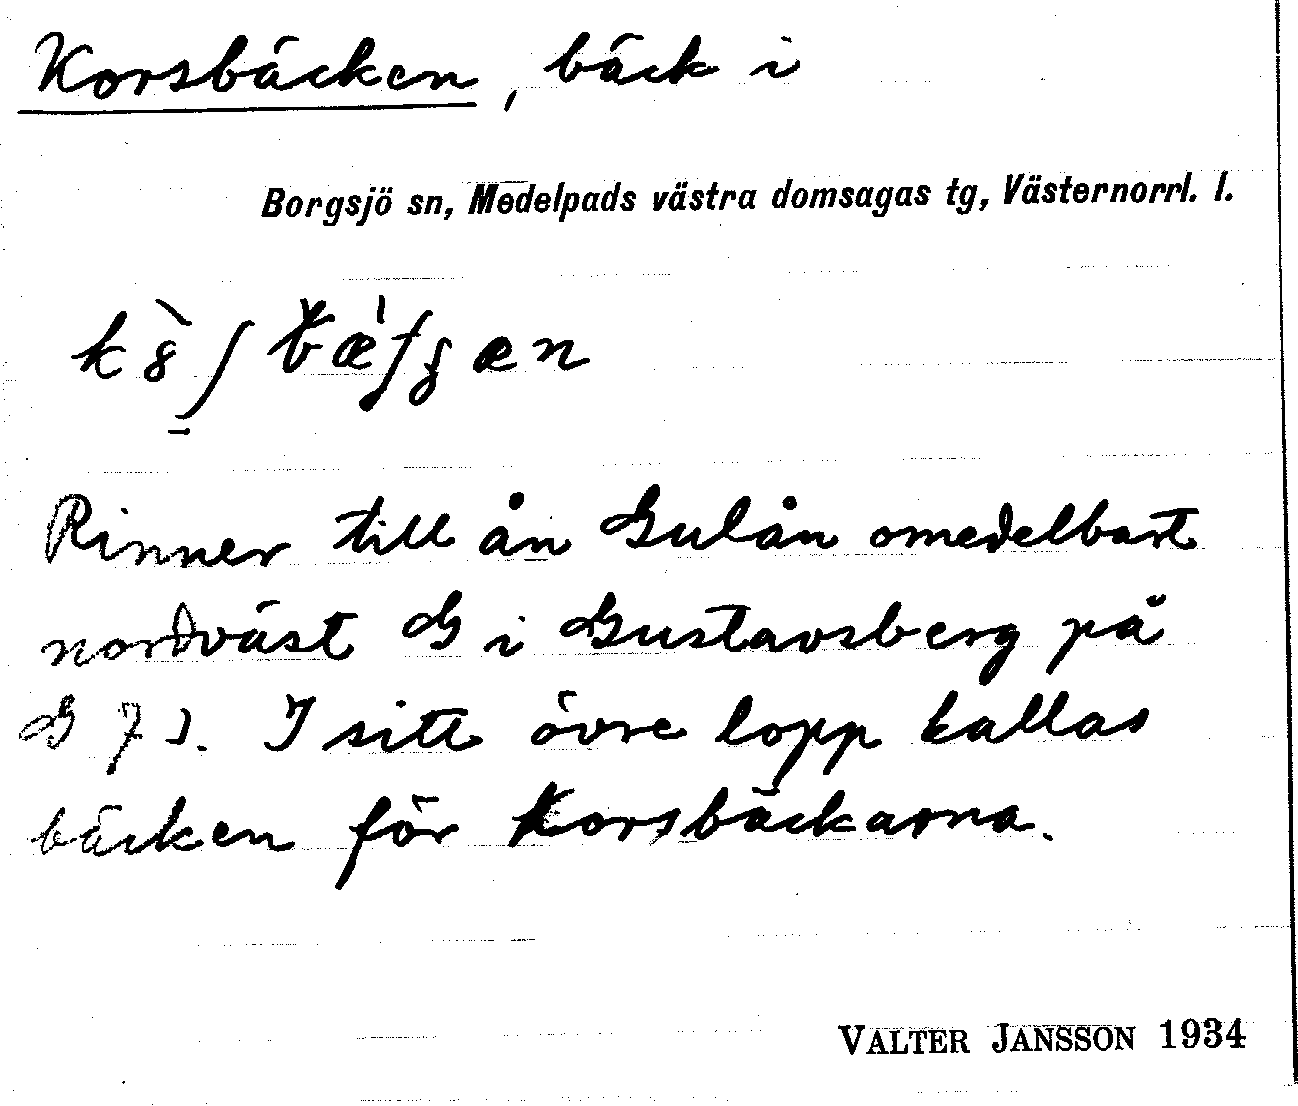 Korsbäcken, bäck i
Borgsjö sn, Medelpads västra domsagas tg, Västernorrl. l.
Rinner till ån Gulån omedelbart
nordväst G i Gustavsberg på
G 7). I sitt övre lopp kallas
bäcken för Korsbäckarna.
VALTER JANSSON 1934